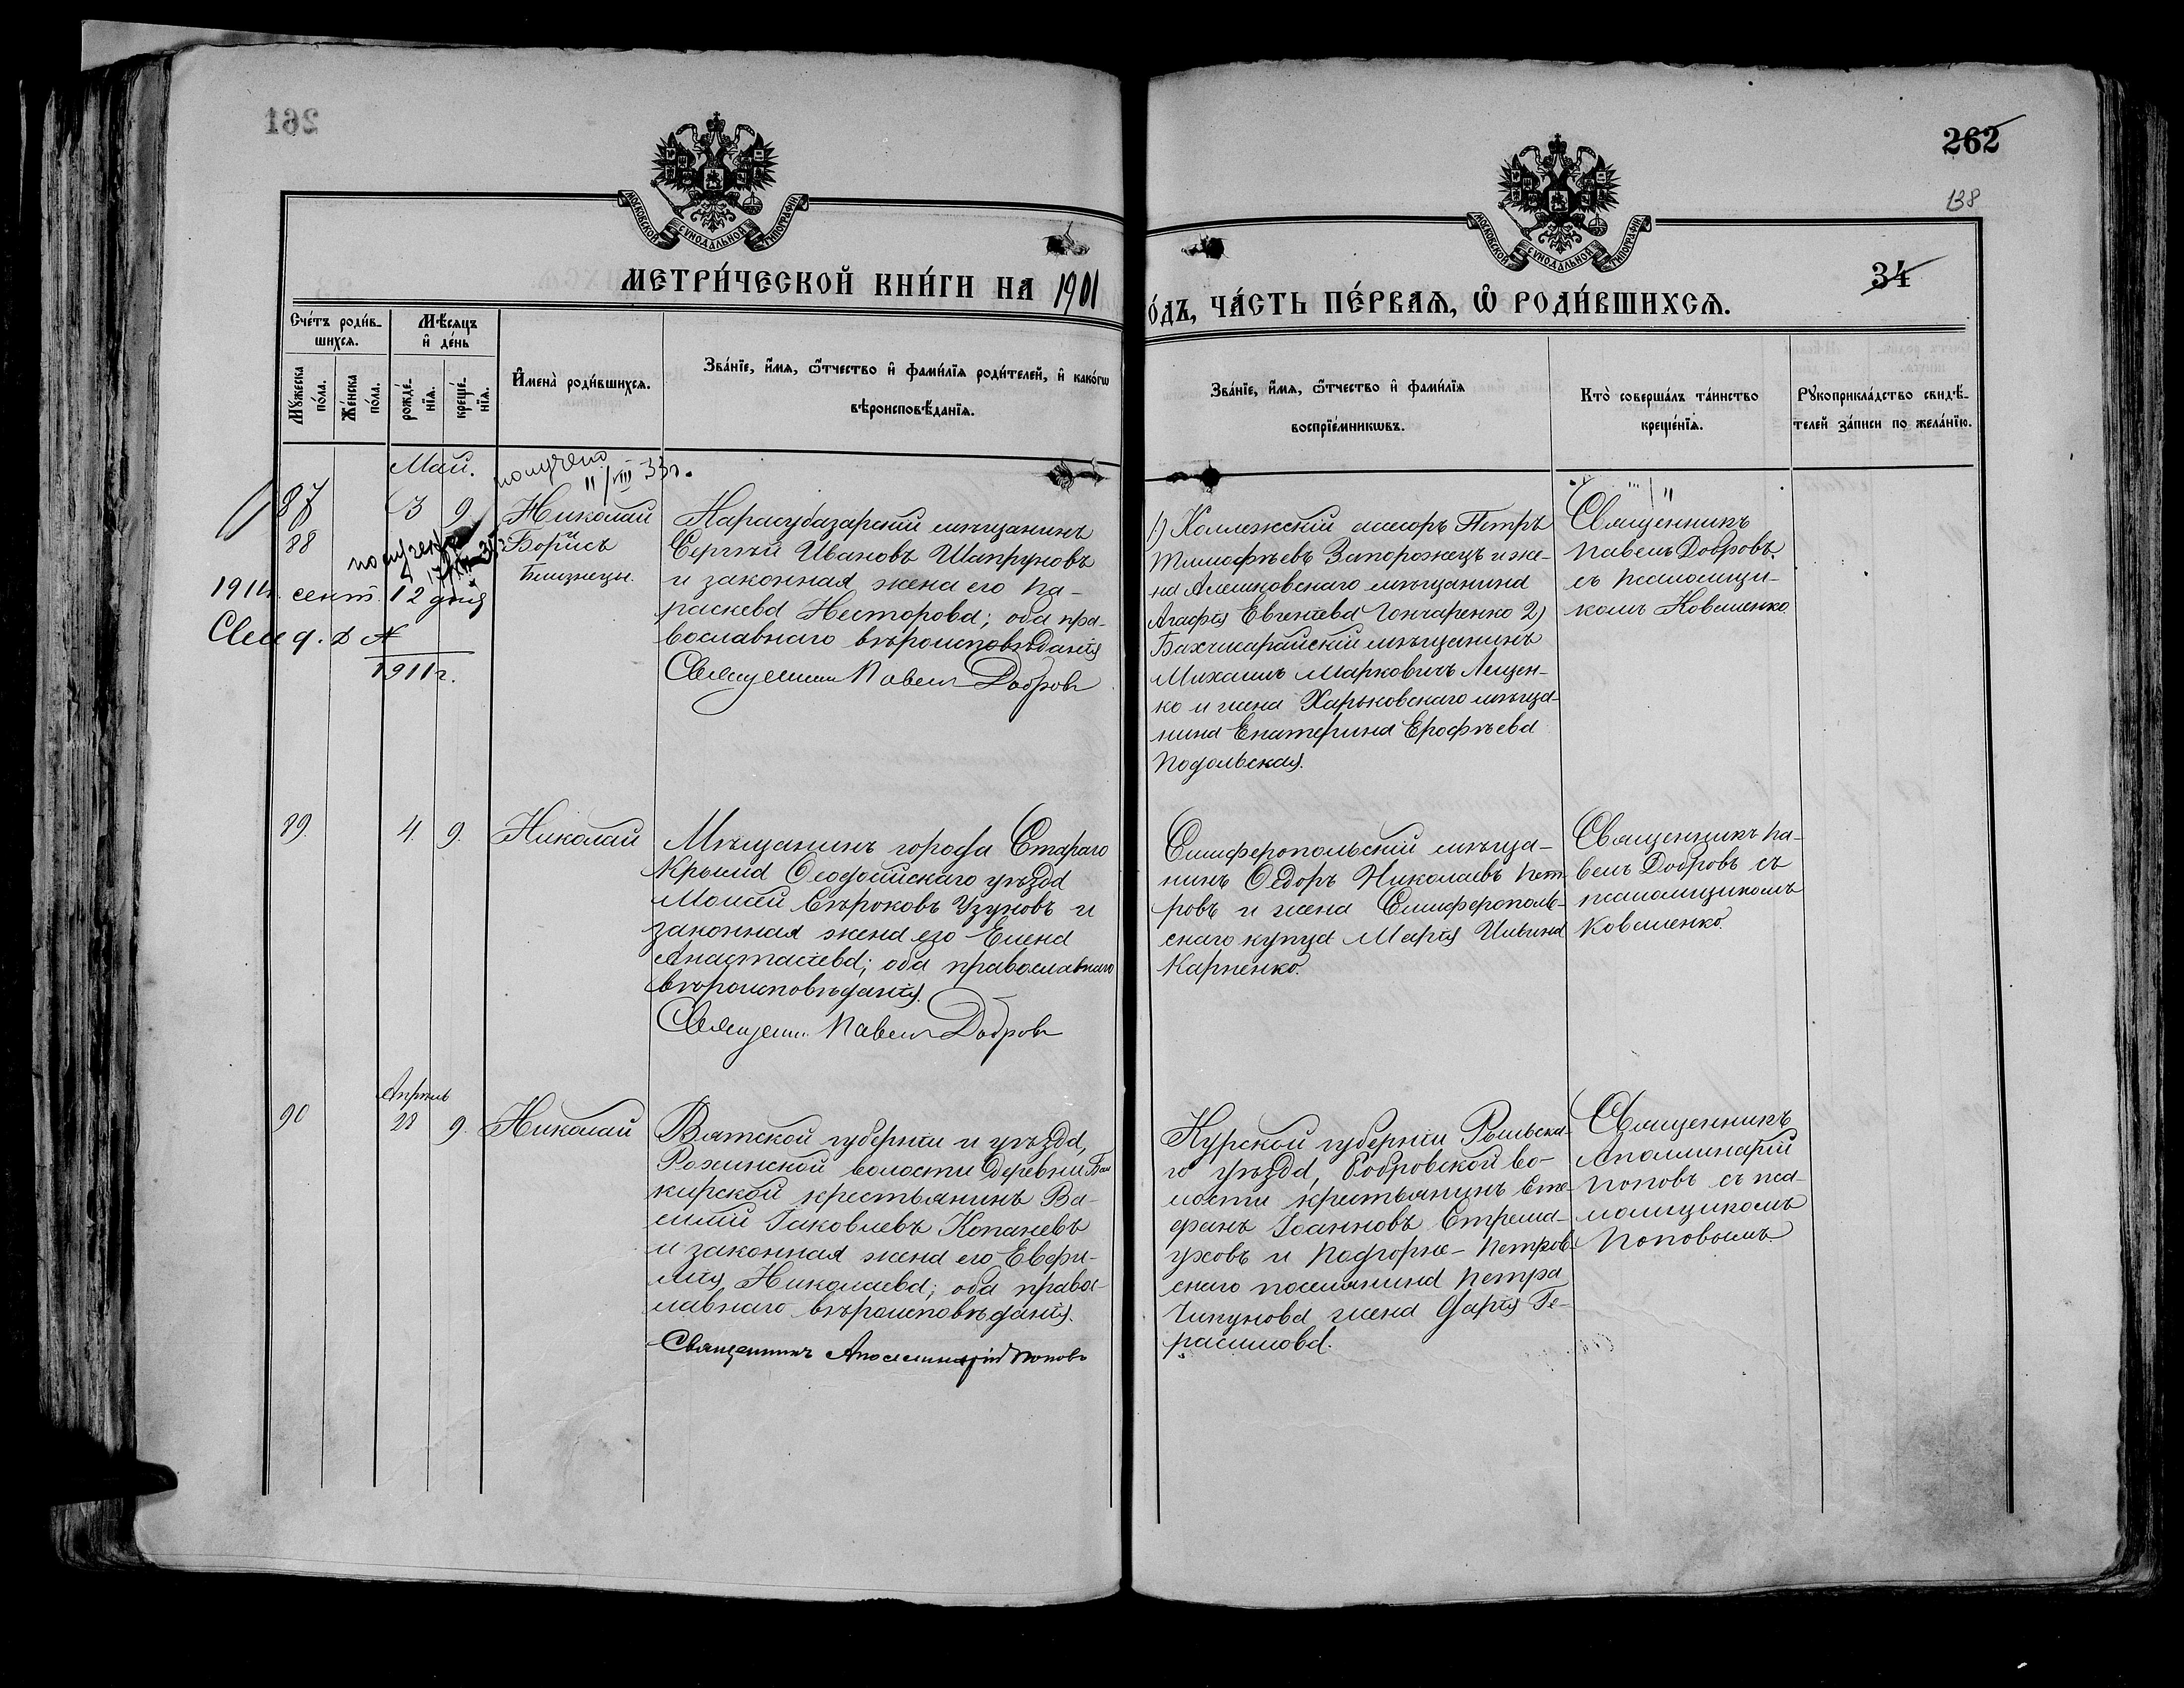 261
262
138
34
МОСКОВСКОЙ СѴНОДАЛЬНОЙ ТИПОГРАФІИ
МОСКОВСКОЙ СѴНОДАЛЬНОЙ ТИПОГРАФІИ
МЕТРИ́ЧЕСКОЙ КНИ́ГИ НА 1901
О́ДЪ, ЧА́СТЬ ПЕ́РВАѦ, Ѽ РОДИ́ВШИХСѦ.
Сче́тъ роди́в-
шихсѧ.
Мѣ́сѧцъ
и҆ де́нь
Мꙋ́жеска
по́ла.
Же́нска
по́ла.
рожде́-
нїѧ.
креще́-
нїѧ.
И҆мена̀ роди́вшихсѧ.
Зва́нїе, и҆́мѧ, ѻ҆́тчество и҆ фами́лїѧ роди́телей, и҆ како́гѡ
вѣроисповѣ́данїѧ.
Зва́нїе, и҆́мѧ, ѻ҆́тчество и҆ фами́лїѧ
воспрїе́мникѡвъ.
Кто̀ соверша́лъ та́инство
креще́нїѧ.
Рꙋкоприкла́дство свидѣ́-
телей за́писи по жела́нїю.
Май.
получено
11/VIII 33г.
87
3
9
Николай
88
Борисъ
Близнецы.
получено
1914. сент. 12 дня
1911г.
Карасубазарскій мѣщанинъ
Сергѣй Ивановъ Шапруновъ
и законная жена его Па-
раскева Несторова; оба пра-
вославнаго вѣроисповѣданія
Священник Павел Добров
1) Коллежскій ассесоръ Петръ
Тимофѣевъ Запорожецъ и же-
на Алешковскаго мѣщанина
Агафія Евгеніева Гончаренко 2)
Бахчисарайскій мѣщанинъ
Михаилъ Марковичъ Лещен-
ко и жена Харьковскаго мѣща-
нина Екатерина Ерофѣева
Подольская.
Священникъ
Павелъ Добровъ
съ псаломщи-
комъ Коваленко.
89.
4.
9.
Николай
Мѣщанинъ города Стараго
Крыма Ѳеодосійскаго уѣзда
Моисей Сѣроковъ Узуновъ и
законная жена его Елена
Анастасіева; оба православнаго
вѣроисповѣданія.
Священ. Павел Добров
Симферопольскій мѣща-
нинъ Ѳедоръ Николаевъ Пет-
ровъ и жена Симферополь-
скаго купца Марія Ильина
Карпенко.
Священникъ Па-
велъ Добровъ съ
псаломщикомъ
Коваленко.
Апрѣль
90
28
9.
Николай
Вятской губерніи и уѣзда,
Рохинской волости деревни Баш
кирской крестьянинъ Ва-
силій Іаковлевъ Копаневъ
и законная жена его Евфи-
мія Николаева; оба правос-
лавнаго вѣроисповѣданія.
Священникъ Аполлинарій Поповъ
Курской губерніи Рыльска-
го уѣзда, Бобровской во-
лости крестьянинъ Сте-
фанъ Іоанновъ Стрема-
уховъ и Подгорне-Петров-
скаго поселянина Петра
Чипунова жена Дарія Ге-
расимова.
Священникъ
Аполлинарій
Поповъ съ пса-
ломщикомъ
Поповымъ